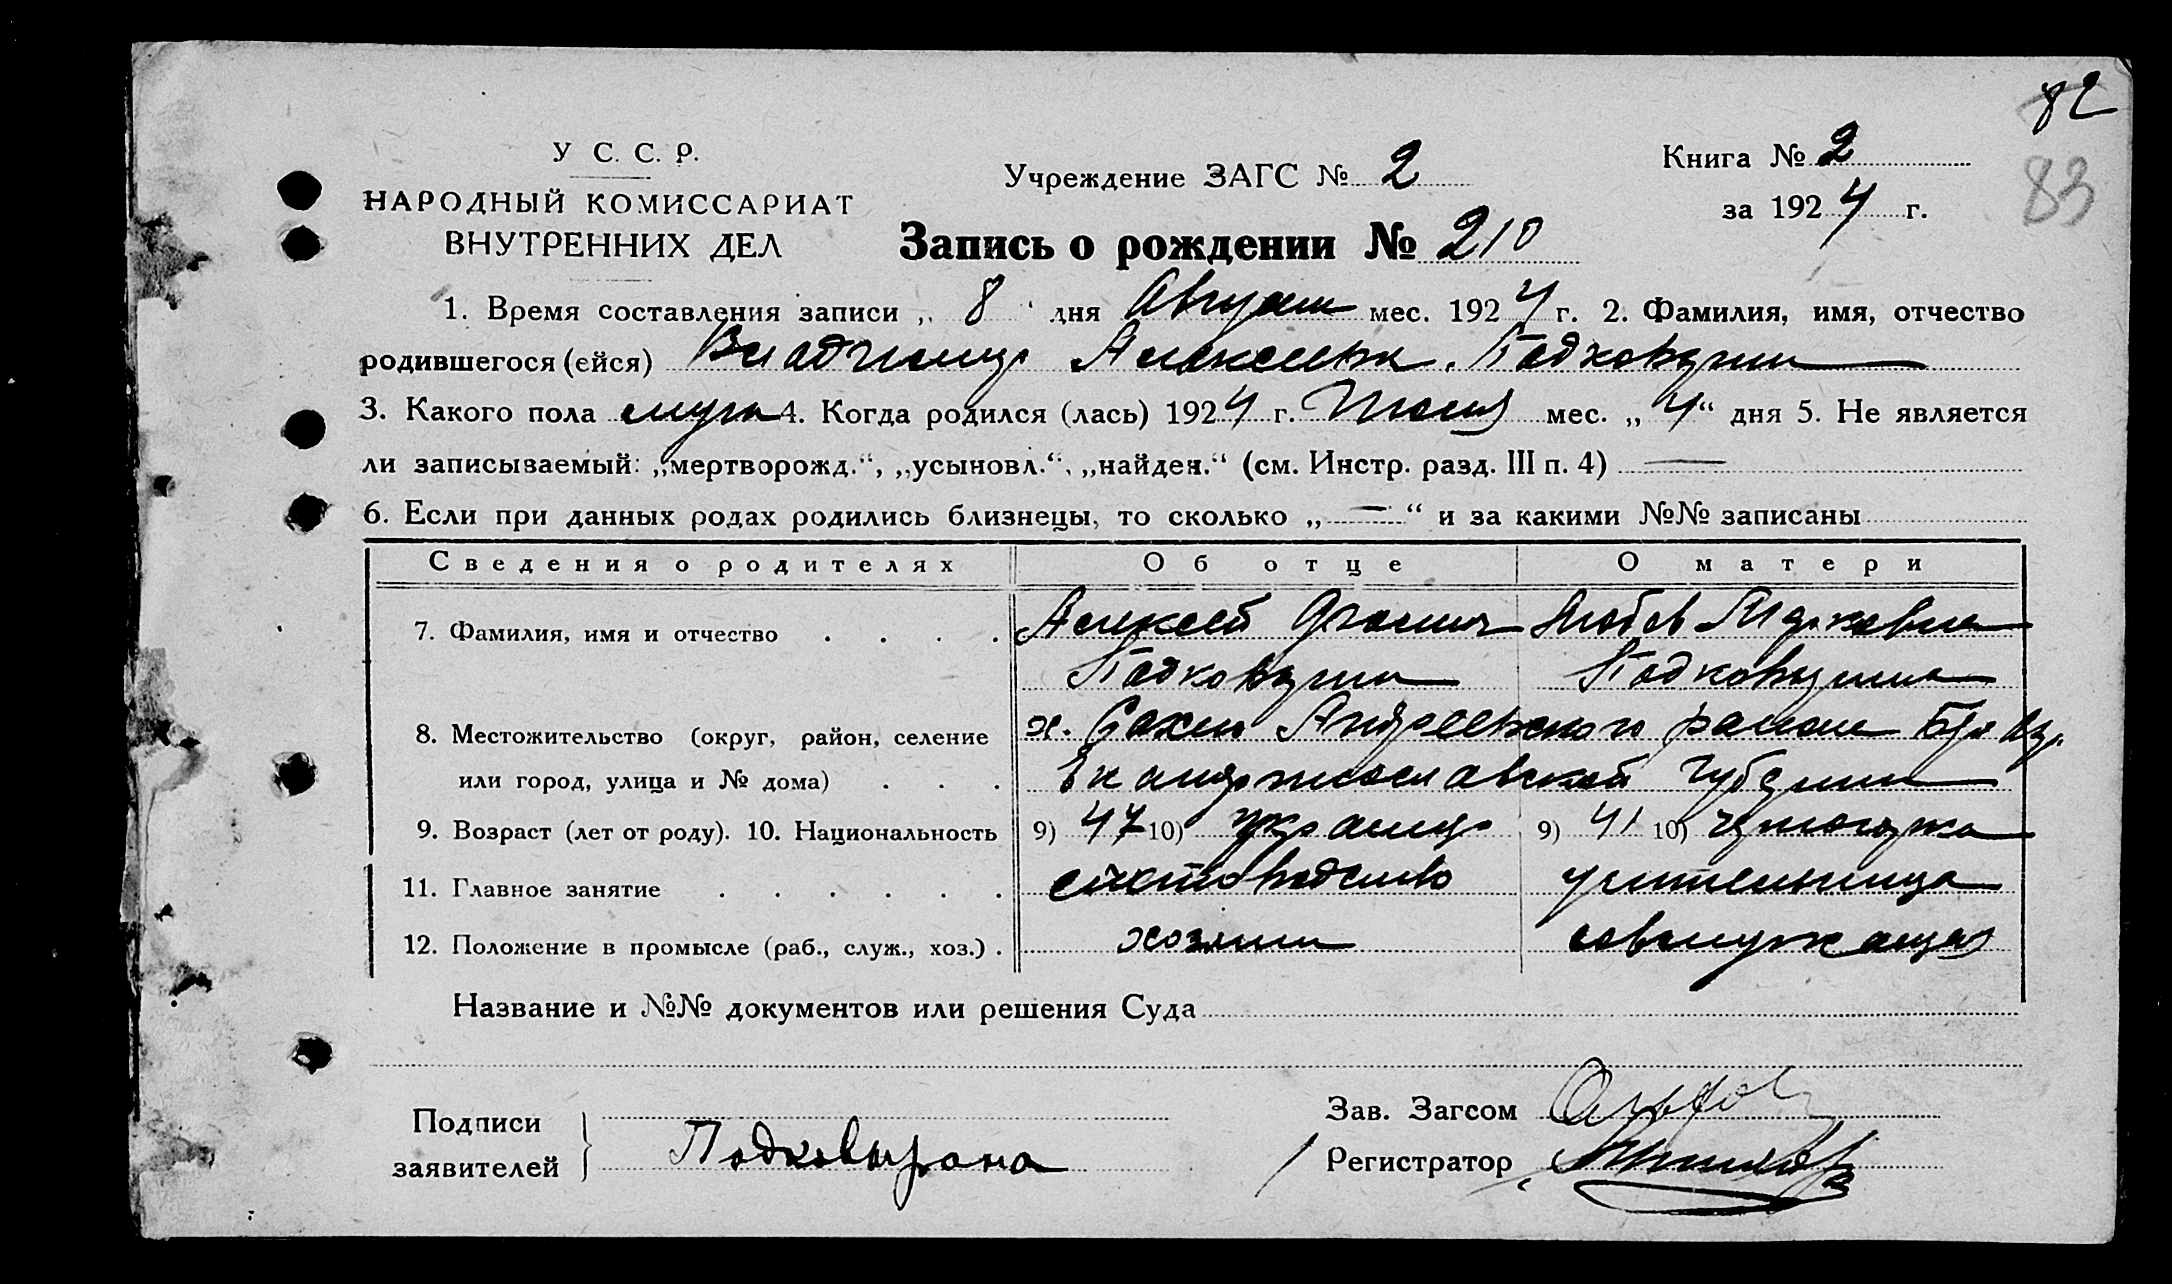 82
83
У С. С. Р.
НАРОДНЫЙ КОМИССАРИАТ
ВНУТРЕННИХ ДЕЛ
Учреждение ЗАГС № 2
Книга № 2
за 1924 г.
Запись о рождении № 210
1. Время составления записи „ 8 " дня Август мес. 1924 г. 2. Фамилия, имя, отчество
родившегося (ейся) Владимир Алексеев.
3. Какого пола муж 4. Когда родился (лась) 1924 г. Июля мес. „ 4 “ дня 5. Не является
ли записываемый: „мертворожд.“, „усыновл.“, „найден.“ (см. Инстр. разд. III п. 4) —
6. Если при данных родах родились близнецы, то сколько „ — “ и за какими №№ записаны
Сведения о родителях Об отце О матери
7. Фамилия, имя и отчество Алексей Любов Марковна
8. Местожительство (округ, район, селение х. Андреевского района
или город, улица и № дома) Екатеринославской губернии
9. Возраст (лет от роду). 10. Национальность 9) 47 10) украинц 9) 41 10)
11. Главное занятие скотоводство учительница
12. Положение в промысле (раб., служ., хоз.) хозяин совслужащая
Название и №№ документов или решения Суда
Подписи
заявителей
Зав. Загсом
Регистратор